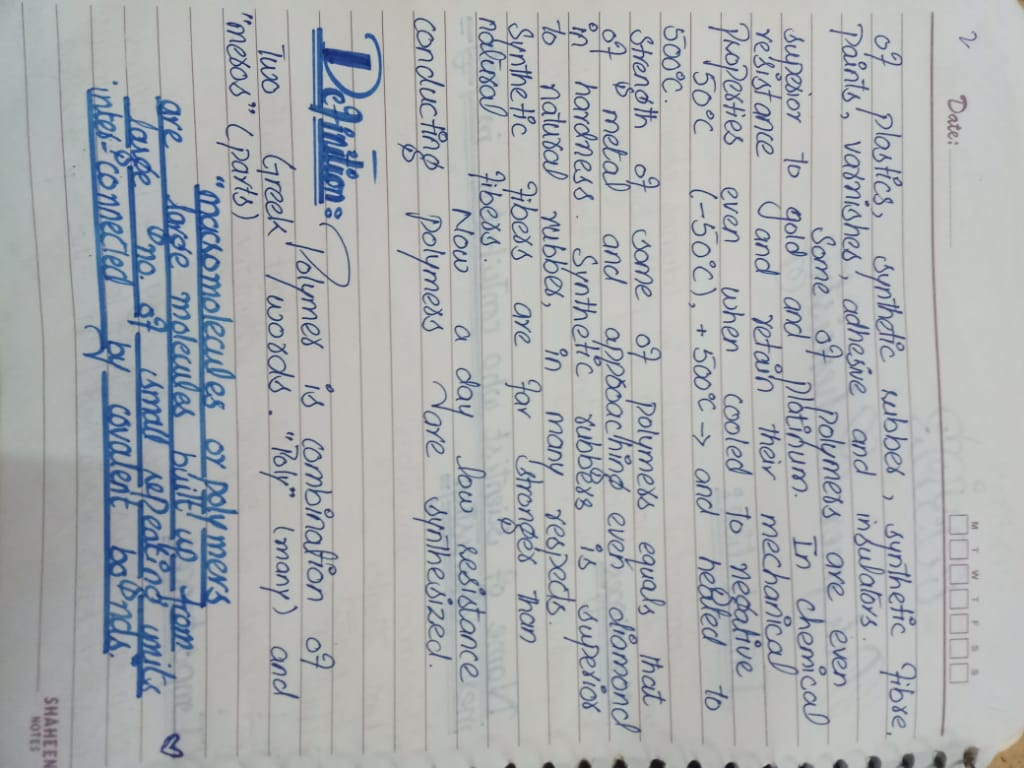 2
Date:
M T W T F S S
of plastics, synthetic rubber, synthetic fibre,
paints, varnishes, adhesive and insulators.
Some of polymers are even
superior to gold and platinum. In chemical
resistane and retain their mechanical
Properties even when cooled to negative
50°C (-50°C), +500°C → and heated to
500°C.
Strength of some of polymers equals that
of metal and approaching even diamond
in hardness. Synthetic rubbers is superior
to natural rubber, in many respects.
Synthetic fibers are far stronger than
natural fibers.
Now a day low resistance
conducting polymers are synthesized.
Definition:
Polymer is combination of
Two Greek words. "Poly" (many) and
"meros" (parts)
"macromolecules or polymers
are large molecules built up from
large no of small repeating units
inter-connected by covalent babnds.
SHAHEEN
NOTES